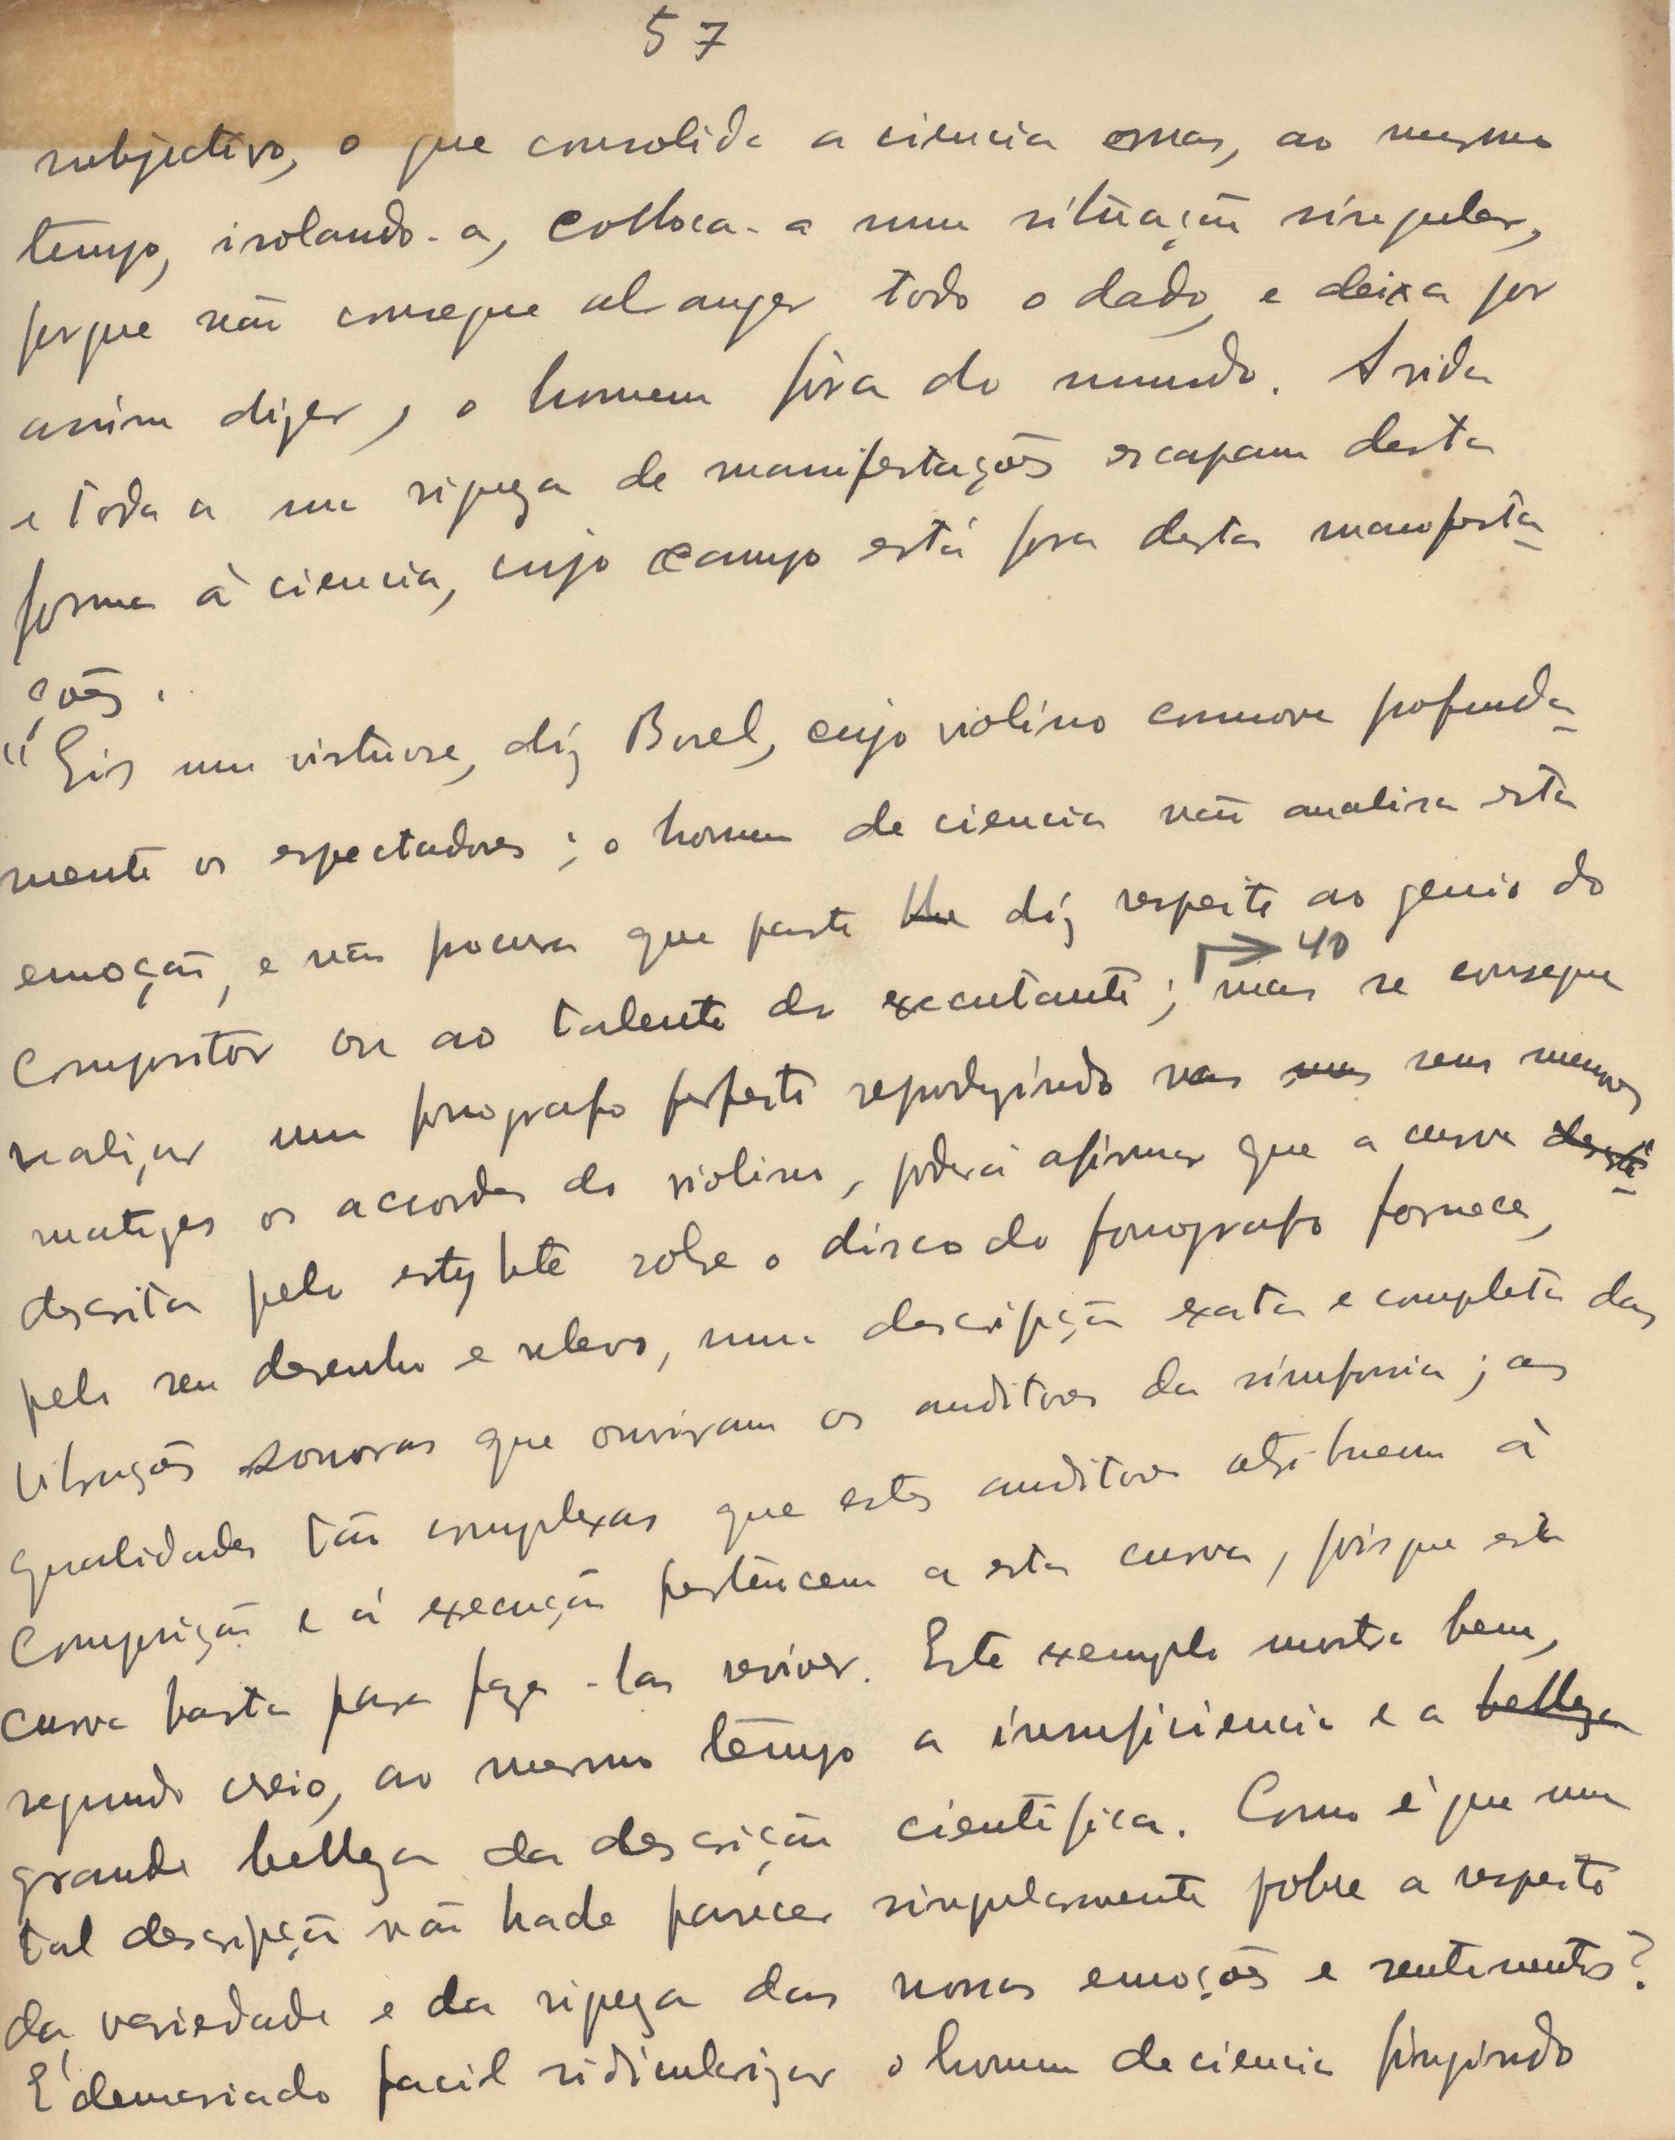 57
subjectivo, o que consolida a ciencia mas, ao mesmo
tempo, isolando-a, colloca-a numa situação singular,
porque não consegue abranger todo o dado, e deixa por
assim dizer, o homem fóra do mundo. A vida
e toda a sua riqueza de manifestações escapam desta
forma à ciencia, cujo campo está fora destas manifesta-
ções.
"Eis um virtuose, diz Borel, cujo violino commove profunda-
mente os espectadores; o homem de ciencia não analisa esta
emoção, e não procura que parte diz respeito ao genio do
compositor ou ao talento do executante; 40 mas se consegue
realizar um fonografo perfeito reproduzindo nas mas seus menores
matizes os accordes do violino, poderá afirmar que a curva deste
descrita pelo estylete sobre o disco do fonografo fornece,
pelo seu desenho e relevo, uma descripção exata e completa das
vibrações sonoras que ouviram os auditores da simfonia; as
qualidades tão complexas que estes auditores atribuem à
composição e á execução pertencem a esta curva, pois que esta
curva basta para faze-las reviver. Este exemplo mostra bem,
segundo creio, ao mesmo tempo a insuficiencia e a belleza
grande belleza da descrição cientifica. Como é que uma
tal descripção não hade parecer singularmente pobre a respeito
da variedade e da riqueza das nossas emoções e sentimentos?
É demasiado facil ridicularizar o homem de ciencia fingindo